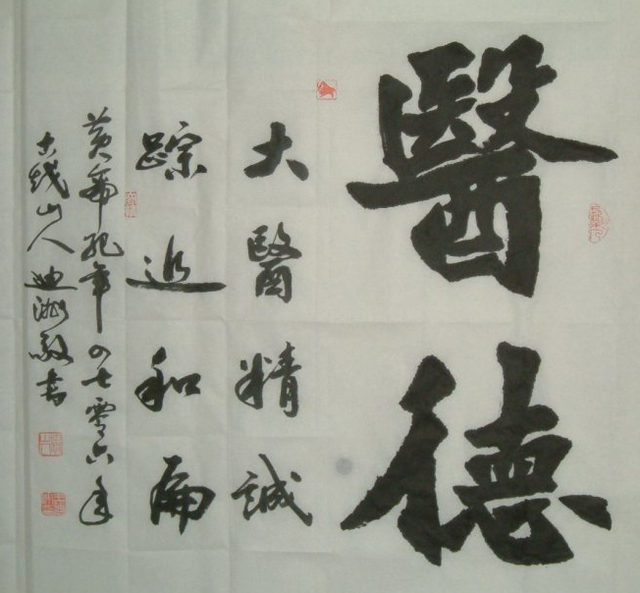 醫德
大醫精誠
踪追和扁
黃帝紀年四七零六年
古钱山人迪澂敬書